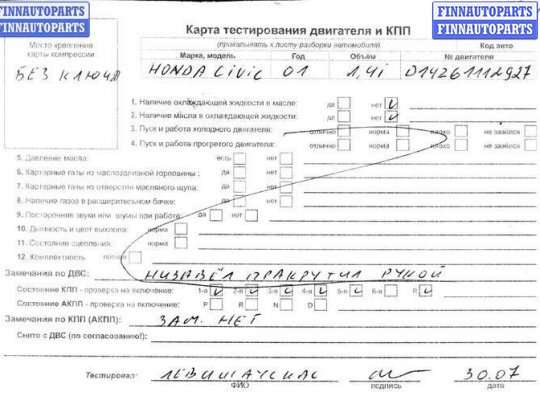 FINNAUTOPARTS
FINNAUTOPARTS
FINNAUTOPARTS
FINNAUTOPARTS
Место крепления
карты компрессии
БЕЗ КЛЮЧА
Карта тестирования двигателя и КПП
(прикалывать к листу разборки автомобиля)
Марка, модель Год Объём № двигателя Код авто
HONDA CIVIC 01 1,4i D14Z61112927
1. Наличие охлаждающей жидкости в масле: да нет V
2. Наличие масла в охлаждающей жидкости: да нет V
3. Пуск и работа холодного двигателя: отлично норма плохо не завелся
4. Пуск и работа прогретого двигателя: отлично норма плохо не завелся
5. Давление масла: есть нет
6. Картерные газы из маслозаливной горловины: да нет
7. Картерные газы из отверстия масляного щупа: да нет
8. Наличие газов в расширительном бачке: да нет
9. Посторонние звуки или шумы при работе: да нет
10. Дымность и цвет выхлопа: норма
11. Состояние сцепления: норма
12. Комплектность: полная
Замечания по ДВС: НИЗАВЁЛ ПРАКРУТИЛ РУКОЙ
Состояние КПП - проверка на включение: 1-я V 2-я V 3-я V 4-я V 5-я V 6-я R V
Состояние АКПП - проверка на включение: P R N D
Замечания по КПП (АКПП): ЗАМ. НЕТ
Снято с ДВС (по согласованию!):
Тестировал: 30.07
ФИО подпись дата